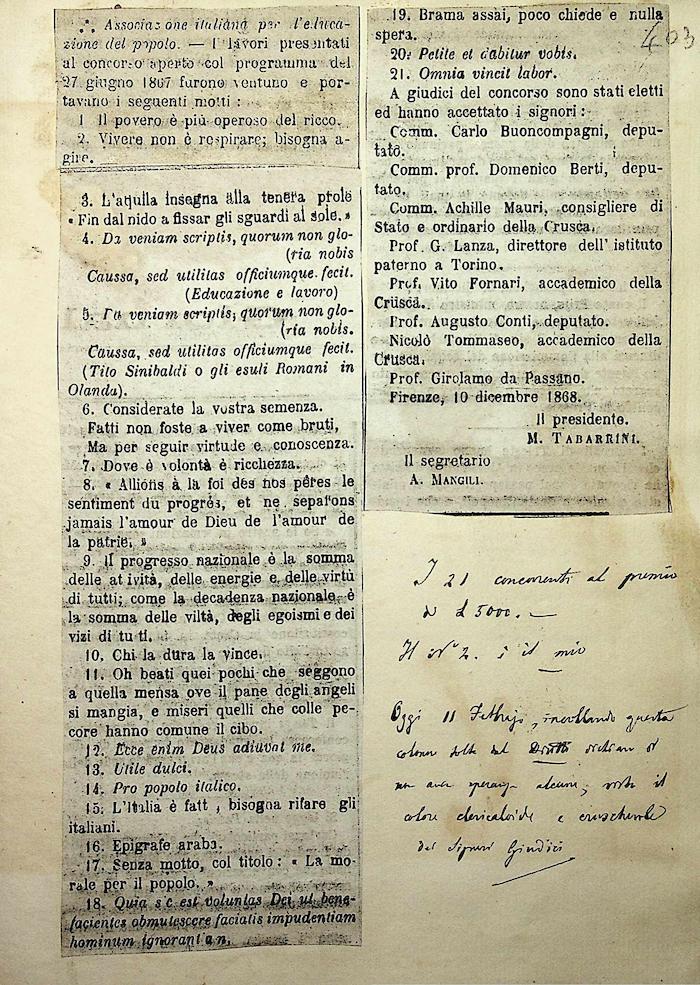 ∴ Associaz one italiana per l'eluca-
zione del popolo. — I lavori presentati
al concorso aperto col programma del
27 giugno 1867 furono ventuno e por-
tavano i seguenti motti :
1 Il povero è più operoso del ricco.
2. Vivere non è respirare; bisogna a-
gire.
3. L'aquila insegna alla tenera prole
« Fin dal nido a fissar gli sguardi al sole. »
4. Da veniam scriptis, quorum non glo-
(ria nobis
Caussa, sed utilitas officiumque fecit.
(Educazione e lavoro)
5. Da veniam scriptis, quorum non glo-
(ria nobis.
Caussa, sed utilitas officiumque fecit.
(Tito Sinibaldi o gli esuli Romani in
Olanda).
6. Considerate la vostra semenza.
Fatti non foste a viver come bruti,
Ma per seguir virtude e conoscenza.
7. Dove è volontà è ricchezza.
8. « Allions à la foi des nos pères le
sentiment du progrés, et ne separons
jamais l'amour de Dieu de l'amour de
la patrie. »
9. Il progresso nazionale è la somma
delle at ività, delle energie e delle virtù
di tutti; come la decadenza nazionale è
la somma delle viltà, degli egoismi e dei
vizi di tu ti.
10. Chi la dura la vince.
11. Oh beati quei pochi che seggono
a quella mensa ove il pane degli angeli
si mangia, e miseri quelli che colle pe-
core hanno comune il cibo.
12. Ecce enim Deus adiuvat me.
13. Utile dulci.
14. Pro popolo italico.
15. L'Italia è fatt , bisogna rifare gli
italiani.
16. Epigrafe araba.
17. Senza motto, col titolo: « La mo-
rale per il popolo. »
18. Quia s c est voluntas Dei, ut bene-
facientes obmutescere faciatis impudentiam
hominum ignorant a n.
19. Brama assai, poco chiede e nulla
spera.
20. Petite et dabitur vobis.
21. Omnia vincit labor.
A giudici del concorso sono stati eletti
ed hanno accettato i signori :
Comm. Carlo Buoncompagni, depu-
tato.
Comm. prof. Domenico Berti, depu-
tato.
Comm. Achille Mauri, consigliere di
Stato e ordinario della Crusca.
Prof. G. Lanza, direttore dell' istituto
paterno a Torino.
Prof. Vito Fornari, accademico della
Crusca.
Prof. Augusto Conti, deputato.
Nicolò Tommaseo, accademico della
Crusca.
Prof. Girolamo da Passano.
Firenze, 10 dicembre 1868.
Il presidente.
M. TABARRINI.
Il segretario
A. MANGILI.
403
I 21 concorrenti al premio
di £ 5000. —
Il N° 2. è il mio
Oggi 11 Febbrajo, incollando questa
colonna tolta dal Diritto
non aver alcuna, visto il
colore clericaloide e cruschevole
dei Signori Giudici